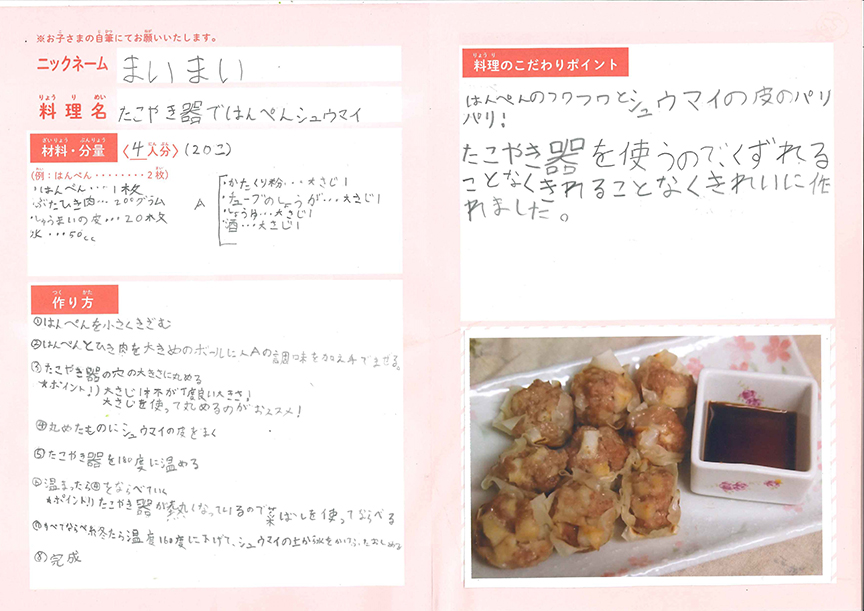 ※お子さまの自筆にてお願いいたします。
ニックネーム まいまい
料理名 たこやき器ではんぺんシュウマイ
材料・分量 〈4人分〉(20コ)
(例:はんぺん‥‥‥‥2枚)
・はんぺん‥‥1枚
・ぶたひき肉…200グラム
・しゅうまいの皮…20枚
水…50cc
A
・かたくり粉…大さじ1
・チューブのしょうが…大さじ1
・しょうゆ…大さじ1
・酒…大さじ1
作り方
①はんぺんを小さくきざむ
②はんぺんとひき肉を大きめのボールに入Aの調味を加え手でまぜる。
③たこやき器の穴の大きさに丸める
★ポイント!)大さじ1本が丁度良い大きさ!
大さじを使って丸めるのがおススメ!
④丸めたものにシュウマイの皮をまく
⑤たこやき器を180度に温める
⑥温まったら④をならべていく
★ポイント!)たこやき器が熱くなっているので菜ばしを使ってならべる
⑦すべてならべ終たら温度160度に下げて、シュウマイの上から水をかけ
⑧完成
料理のこだわりポイント
はんぺんのフワフワとシュウマイの皮のパリ
パリ!
たこやき器を使うので、くずれる
ことなくきれることなくきれいに作
れました。